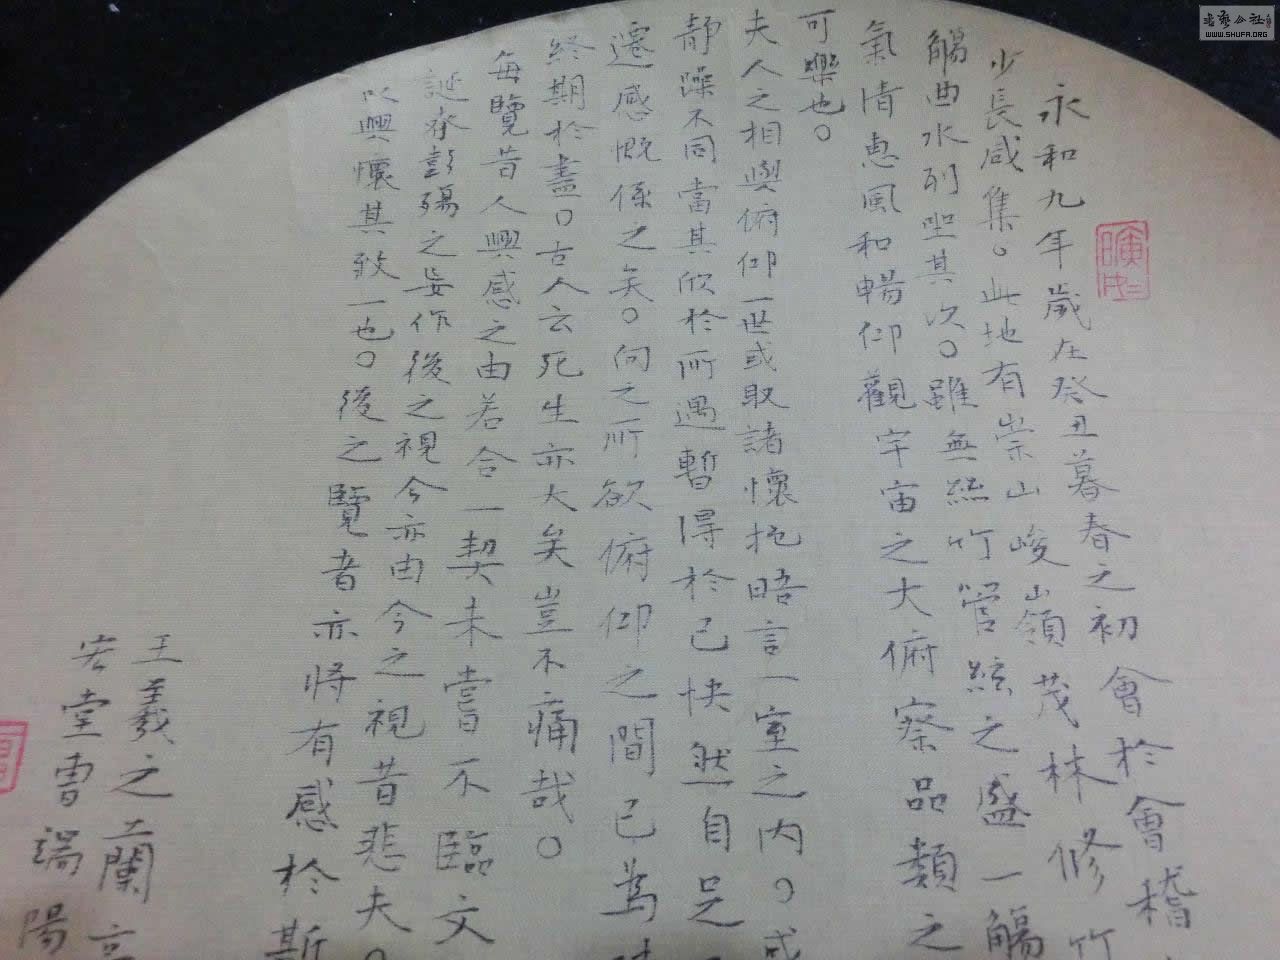 永和九年歲在癸丑暮春之初會於會稽
少長咸集。此地有崇山峻嶺茂林修竹
觴曲水列坐其次。雖無絲竹管絃之盛一觴
氣清惠風和暢仰觀宇宙之大俯察品類之
可樂也。
夫人之相與俯仰一世或取諸懷抱晤言一室之內。或
靜躁不同當其欣於所遇暫得於己快然自足
遷感慨係之矣。向之所欲俯仰之間已爲
終期於盡。古人云死生亦大矣豈不痛哉。
每覽昔人興感之由若合一契未嘗不臨文
誕齊彭殤之妄作後之視今亦由今之視昔悲夫。
以興懷其致一也。後之覽者亦將有感於斯
王羲之蘭言
宏堂曹端陽
書藝公社
WWW.SHUFA.ORG